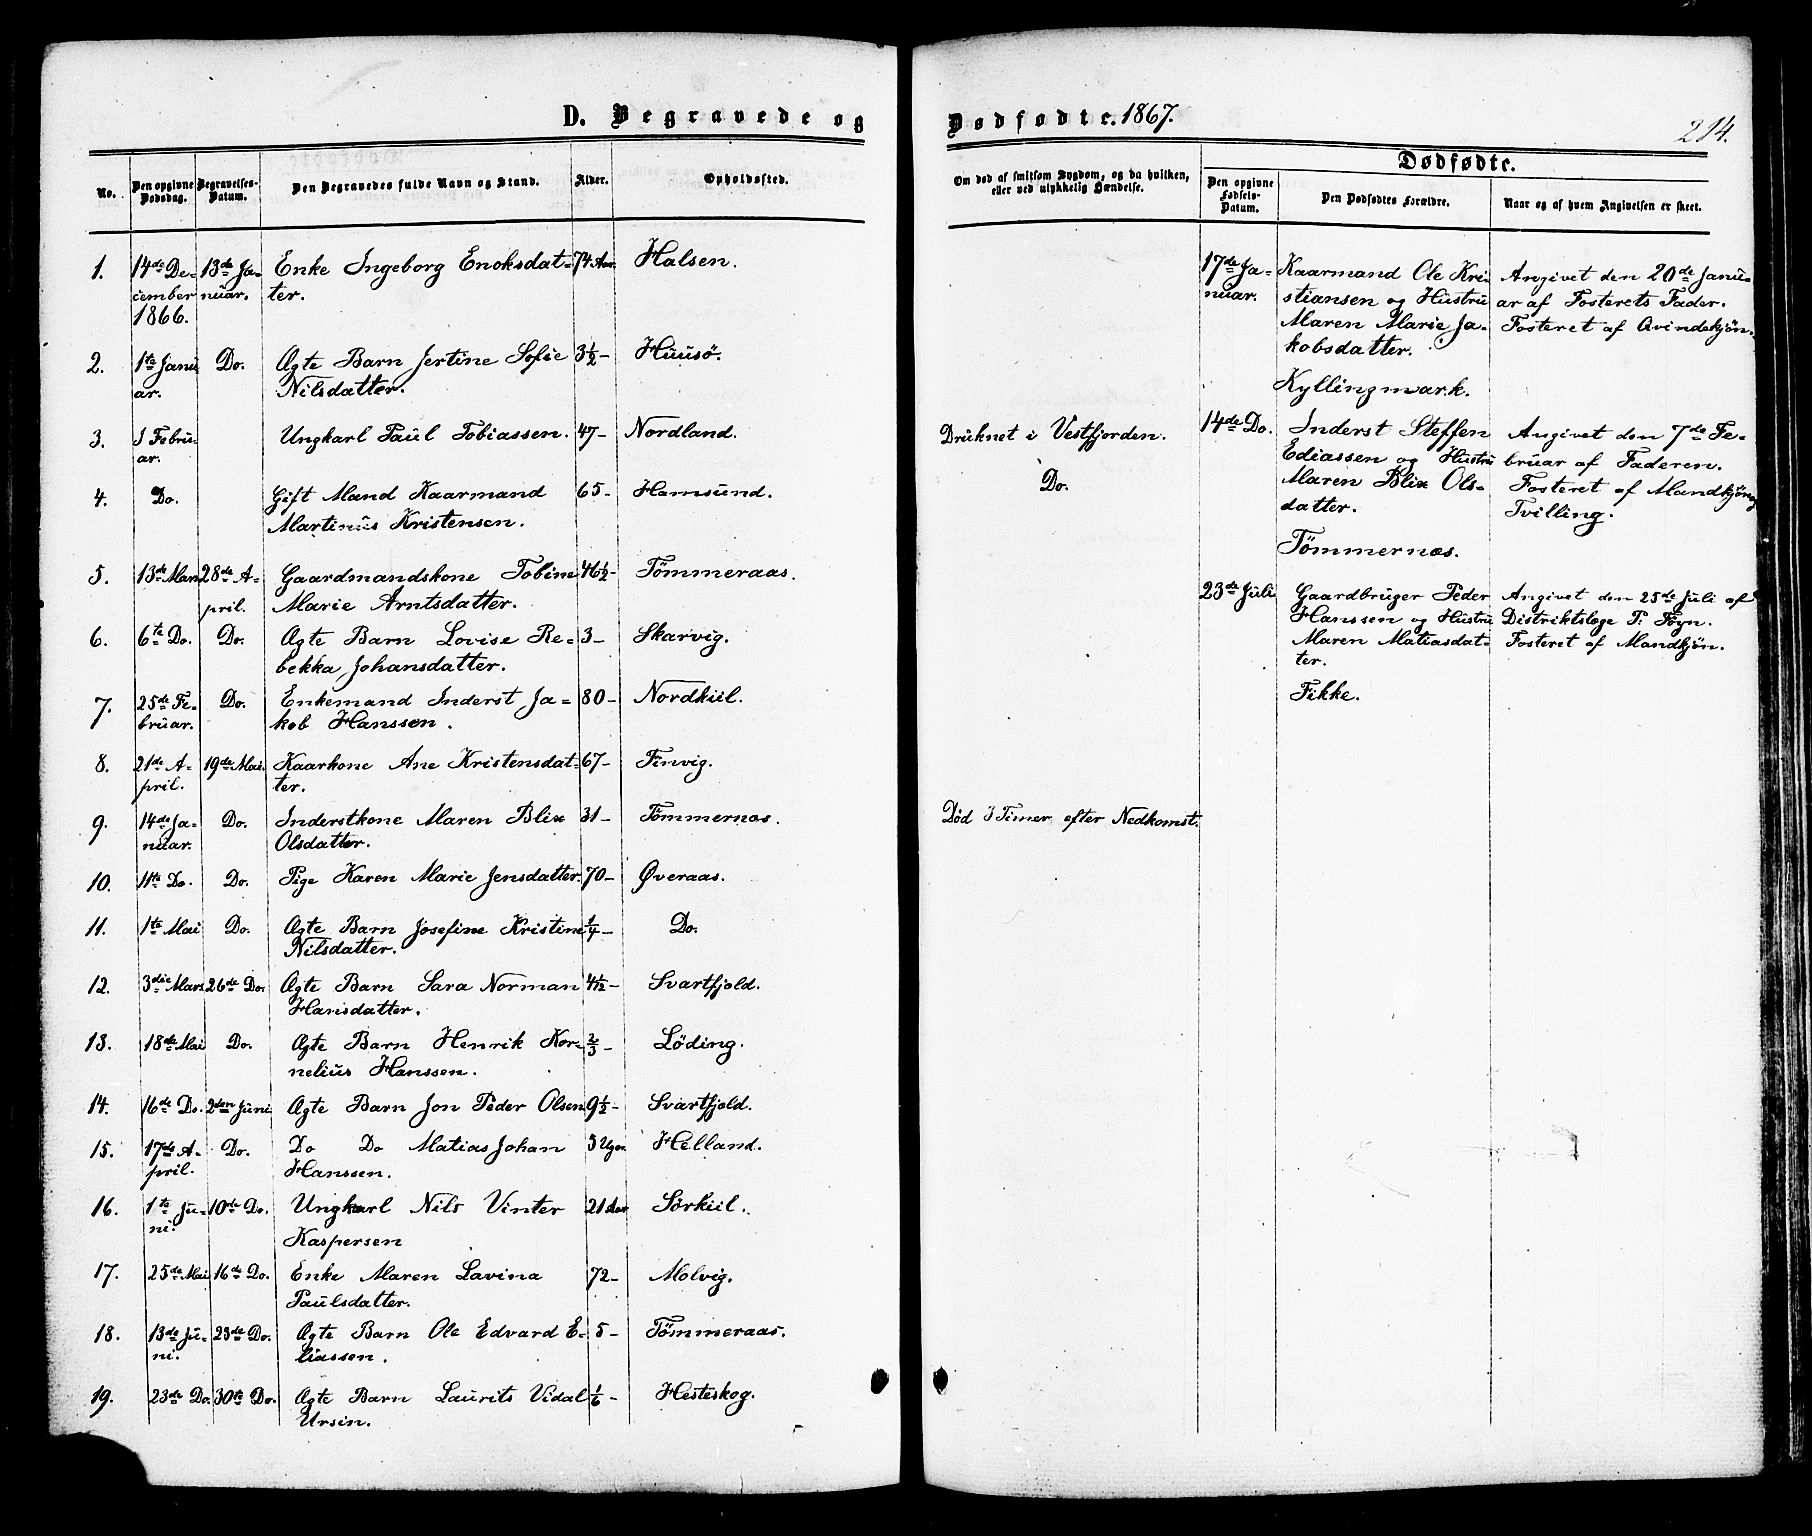 D. Begravede og
No. Den opgivne Dødsdag. Begravelses-Datum. Den Begravedes fulde Navn og Stand. Alder. Opholdssted.
1. 14de De- 13de Ja- Enke Ingeborg Enoksdat- 74 Aar. Halsen.
cember nuar. ter.
1866.
2. 1ste Janu Do. Ægte Barn Jertine Sofie 3½ - Huusö.
ar. Nilsdatter.
3. Febru- Ungkarl Paul Tobiassen. 47 - Nordland.
ar.
4. Do. Gift Mand Kaarmand 65 - Hamsund.
Martinus Kristensen.
5. 13de Mars 28de A- Gaardmandskone Tobine 46½ - Tömmeraas.
pril. Marie Arntsdatter.
6. 6te Do. Do. Ægte Barn Lovise Re- 3 - Skarvig.
bekka Johansdatter.
7. 25de Fe- Do. Enkemand Inderst Ja- 80 - Nordkiil.
bruar. kob Hanssen.
8. 21de A- 19de Mai. Kaarkone Ane Kristensdat- 67 - Finvig.
pril. ter.
9. 14de Ja- Do. Inderstkone Maren Blix 31 - Tömmernæs.
nuar. Olsdatter.
10. 11te Do. Do. Pige Karen Marie Jensdatter. 70 - Øveraas.
11. 1ste Mai Do. Ægte Barn Josefine Kristine ¼ - Do.
Nilsdatter.
12. 3die Mars 26de Do. Ægte Barn Sara Norman - Svartfjeld.
Hansdatter.
13. 18de Mai Do. Ægte Barn Henrik Kor- ⅔ - Löding.
nelius Hanssen.
14. 16de Do. 2den Juni Ægte Barn Jon Peder Olsen 9½ - Svartfjeld.
15. 17de A- Do. Do Do Matias Johan 3 Uger. Helland.
pril. Hanssen.
16. 1ste Ju- 10de Do. Ungkarl Nils Vinter 21 Aar Sörkiil.
ni. Kaspersen
17. 25de Mai 16de Do. Enke Maren Lavina 72 - Molvig.
Paulsdatter.
18. 13de Ju- 23de Do. Ægte Barn Ole Edvard E- 5 - Tömmeraas.
ni. liassen.
19. 23de Do. 30te Do. Ægte Barn Laurits Vidal ⅙ - Hesteskog.
Ursin.
Dødfødte. 1867.
214.
Dødfødte.
Om død af smitsom Sygdom, og da hvilken, eller ved ulykkelig Hændelse. Den opgivne Fødsels-Datum. Den Dødfødtes Forældre. Naar og af hvem Angivelsen er skeet.
17de Ja- Kaarmand Ole Kri- Angivet den 20de Janu-
nuar. stiansen og Hustru ar af Fosterets Fader.
Maren Marie Ja- Fosteret af Qvindekjön.
kobsdatter.
Kyllingmark.
Druknet i Vestfjorden. 14de Do. Inderst Steffen Angivet den 7de Fe-
Ediassen og Hustru bruar af Faderen.
Do. Maren Blix Ols- Fosteret af Mandkjön og
datter. Tvilling.
Tömmernæs.
23de Juli Gaardbruger Peder Angivet den 25de Juli af
Hanssen og Hustru Distriktslæge P. Föyn.
Maren Matiasdat- Fosteret af Mandkjön.
ter.
Fikke.
Död 3 Timer efter Nedkomst.